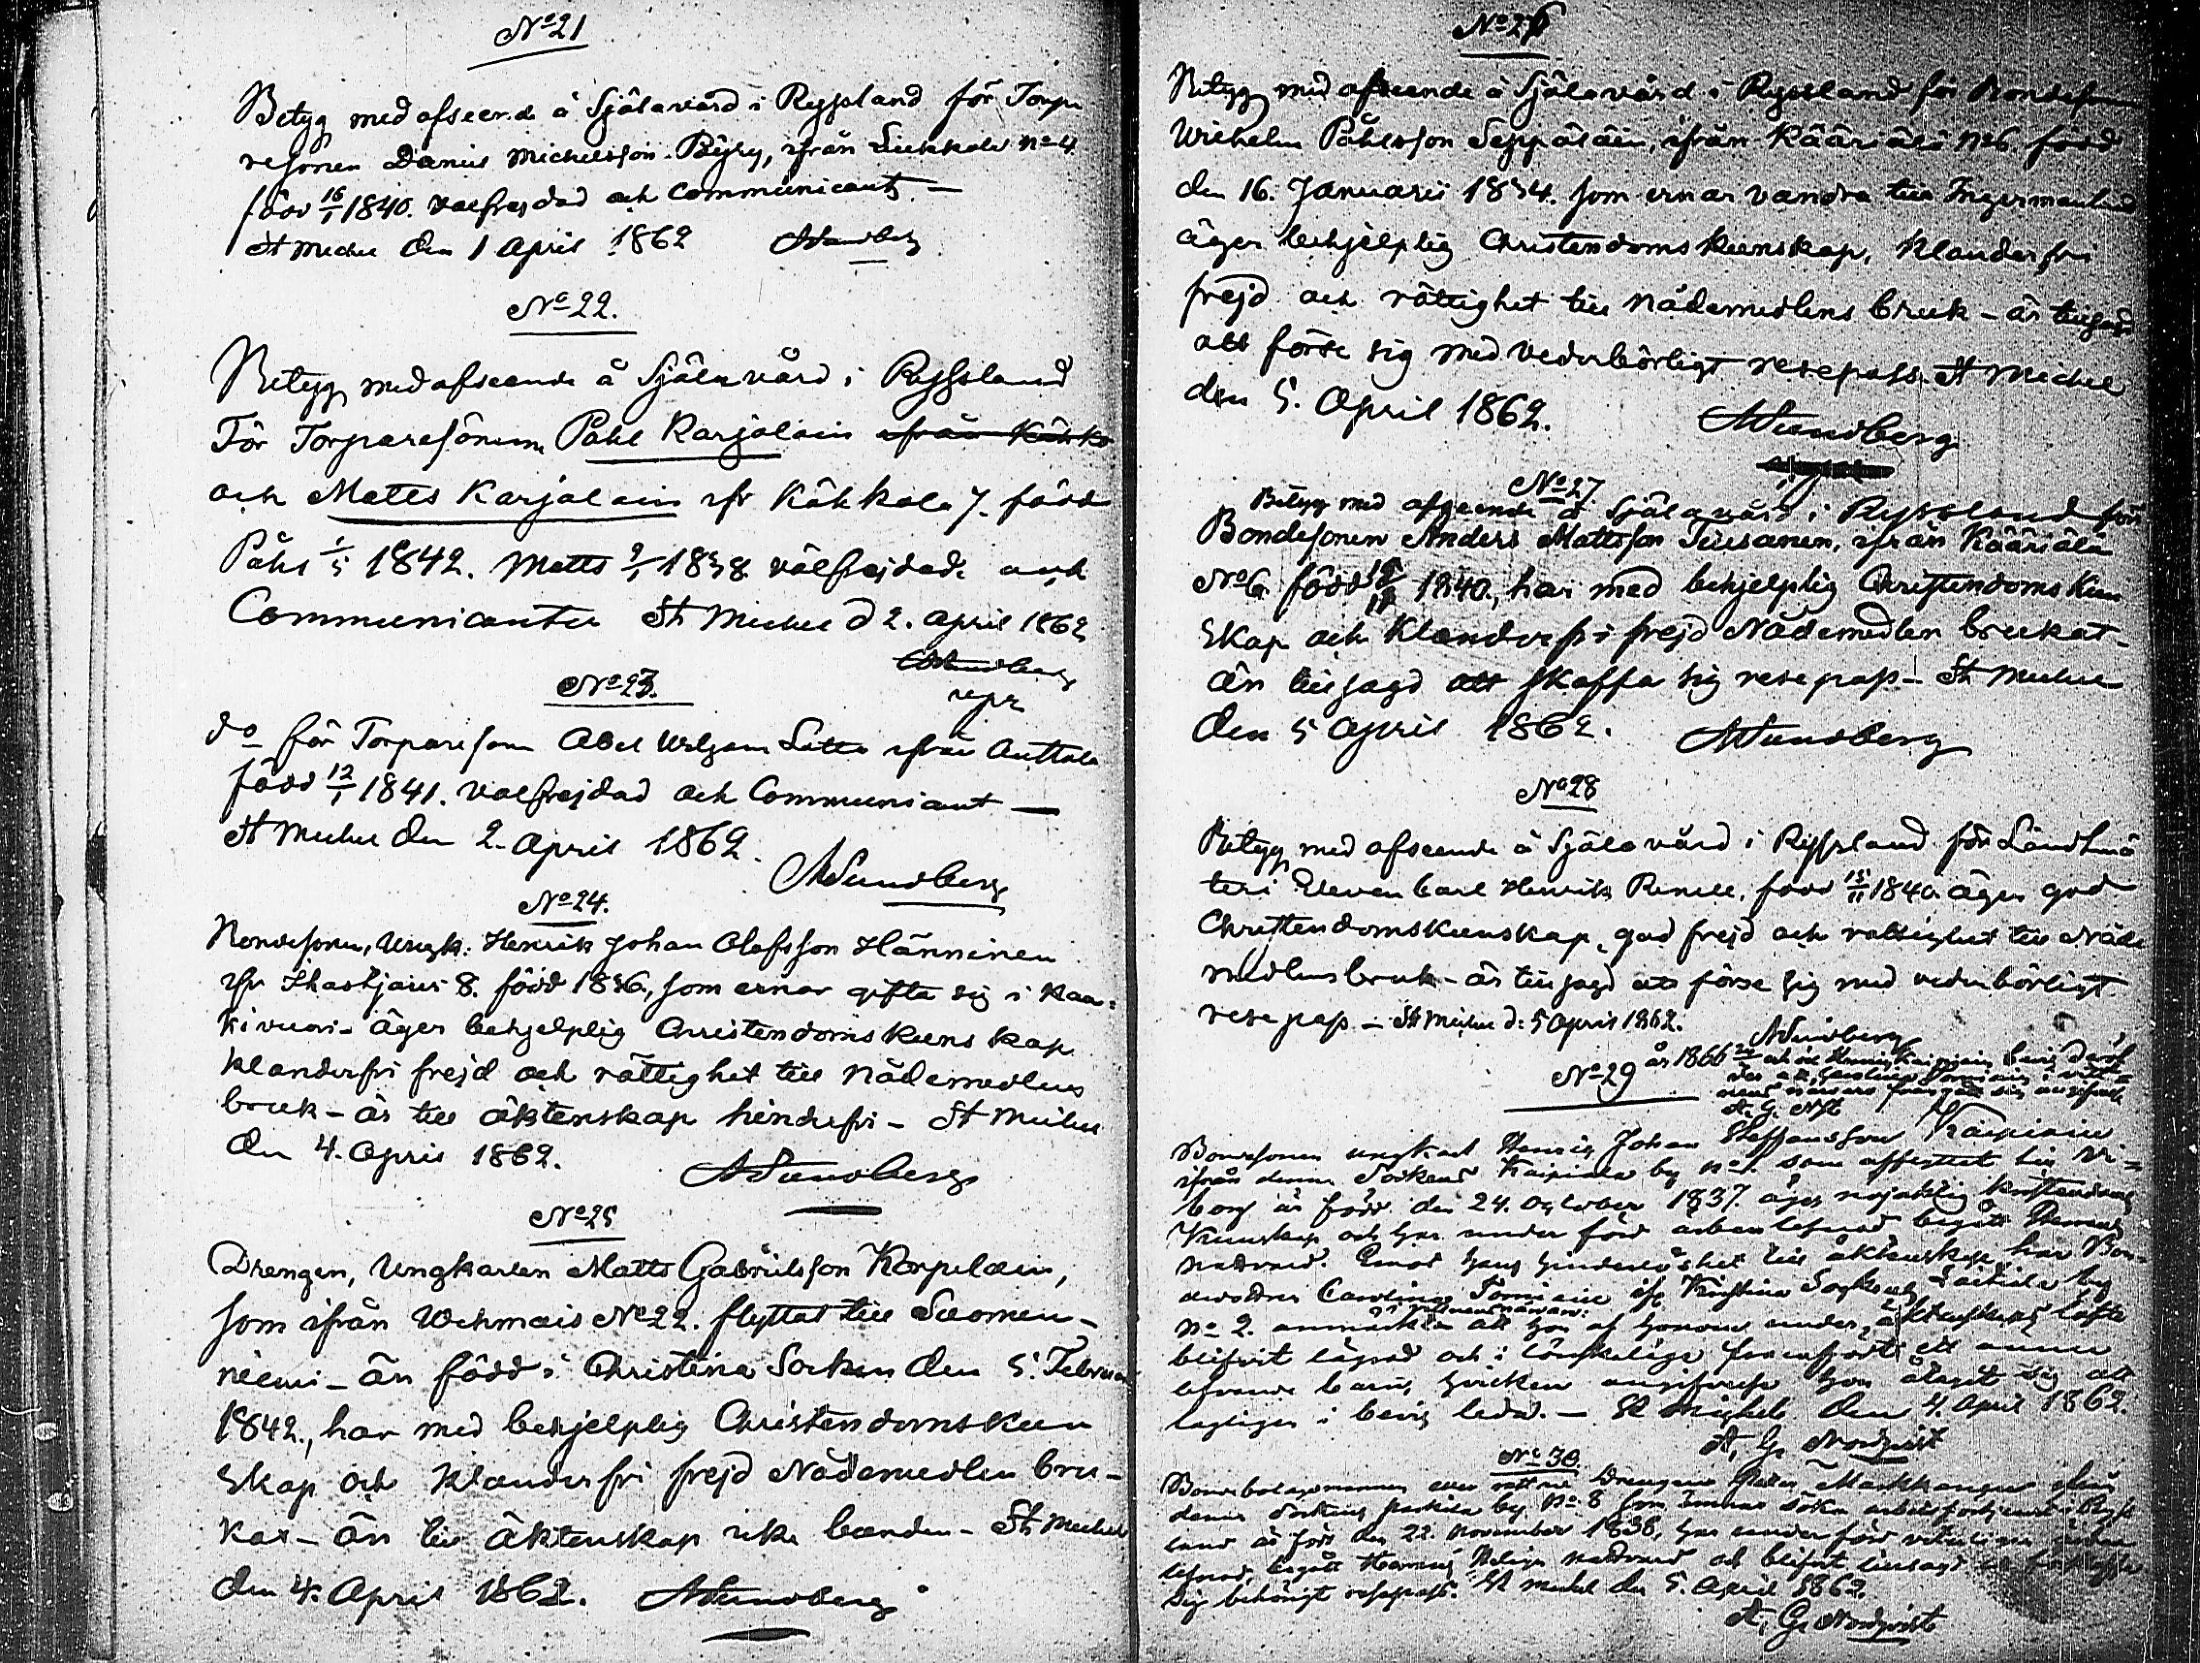 No 21
Betyg med afseende å Själavård i Ryssland för Torpa
resonen Daniel Michelsson Pöyry, ifrån Liukkola No 4
född 16/1 1840. välfrejdad och Communicant –
St Michel den 1 April 1862 ASundberg
No 22.
Betyg med afseende å Själavård i Ryssland
För Torparesönerna Påhl Karjalain ifrån
och Matts Karjalain ifr Kähkölä 7. född
Påhl 1/5 1842. Matts 2/1 1838 välfrejdade och
Communicanter St Michel d 2. april 1862
ASundberg
No 23.
do för Torpareson Abel Wilhjam Litta ifrån Anttola
född 12/1 1841. välfrejdad och Communicant —
St Michel den 2. April 1862.
ASundberg
No 24.
Bondesonen, Ungk. Henrik Johan Olofsson Hänninen
ifr Ihastjärvi 8. född 1836, som ernar gifta sig i Kan=
kivuori – äger behjelplig Christendoms kunskap
klanderfri frejd och rättighet till Nådemedlens
bruk – är till äktenskap hinderfri – St Michel
den 4. April 1862.
ASundberg
No 25
Drengen, Ungkarlen Matts Gabrielsson Korpelain,
som ifrån Wehmais No 22. flyttat till Suomen-
niemi – är född i Christina Socken den 5. Februari
1842., har med behjelplig Christendomskun
skap och klanderfri frejd Nådemedlen bru-
kat – är till äktenskap icke bunden – St Michel
den 4. April 1862. ASundberg
No 26
Betyg med afseende å Själavård i Ryssland för Bondesonen
Wilhelm Påhlsson Seppäläin, ifrån Kääriälä No 6. född
den 16. Januarii 1834. som ernar vandra till Ingermanland
äger behjelplig Christendoms kunskap, Klanderfri
frejd och rättighet till Nådemedlens bruk – är tillsagd
att förse sig med vederbörligt resepass. St Michel
den 5. April 1862.
ASundberg
No 27.
Betyg med afseende å Själavård i Ryssland för
Bondesonen Anders Mattsson Tiusanen, ifrån Kääriälä
No 6 född 1840., har med behjelplig Christendoms kun
skap och Klanderfri frejd Nådemedlen brukat –
är tillsagd att skaffa sig resepass – St Michel
den 5 April 1862. ASundberg
No 28
Betyg med afseende å Själavård i Ryssland för Landtmä
teri Eleven Carl Henrik Renell, född 15/11 1840. äger god
Christendomskunskap, god frejd och rättighet till Nåde
medlens bruk – är tillsagd att förse sig med vederbörligt
resepass – St Michel d: 5 April 1862.
ASundberg
No 29
år 1866
A. G. N
Bondesonen ungkarl Henric Johan Staffansson Kaipiain
ifrån denne Sockens Kaipiala by No 1. som afflyttat till Wi=
borg är född den 24. October 1837. äger nöjaktig kristendoms
kunskap och har under förd ärbar lefnad begått Herrans
nattvard. Emot hans hinderlöshet till äktenskap, har Bon-
dedottren Carolina Torniain ifr Kristina Sockens by
No 2. anmärkt att hon af honom under äktenskaps löfte
blifvit lägrad och i lönskaläge framfödt ett ännu
lefvande barn, hvilken angifvelse hon ålagt sig att
lagligen i bevis leda. – St Michels den 4. April 1862.
A. G. Nordqvist
No 30.
denna Sockens by No 8 som ämnar söka arbetsförtjenst i Ryss
land är född den 22. November 1838, har under förd
lefnad begått Herrans Heliga nattvard och blifvit tillsagd att
sig behörigt respass. St Michel den 5. April 1862.
A. G. Nordqvist